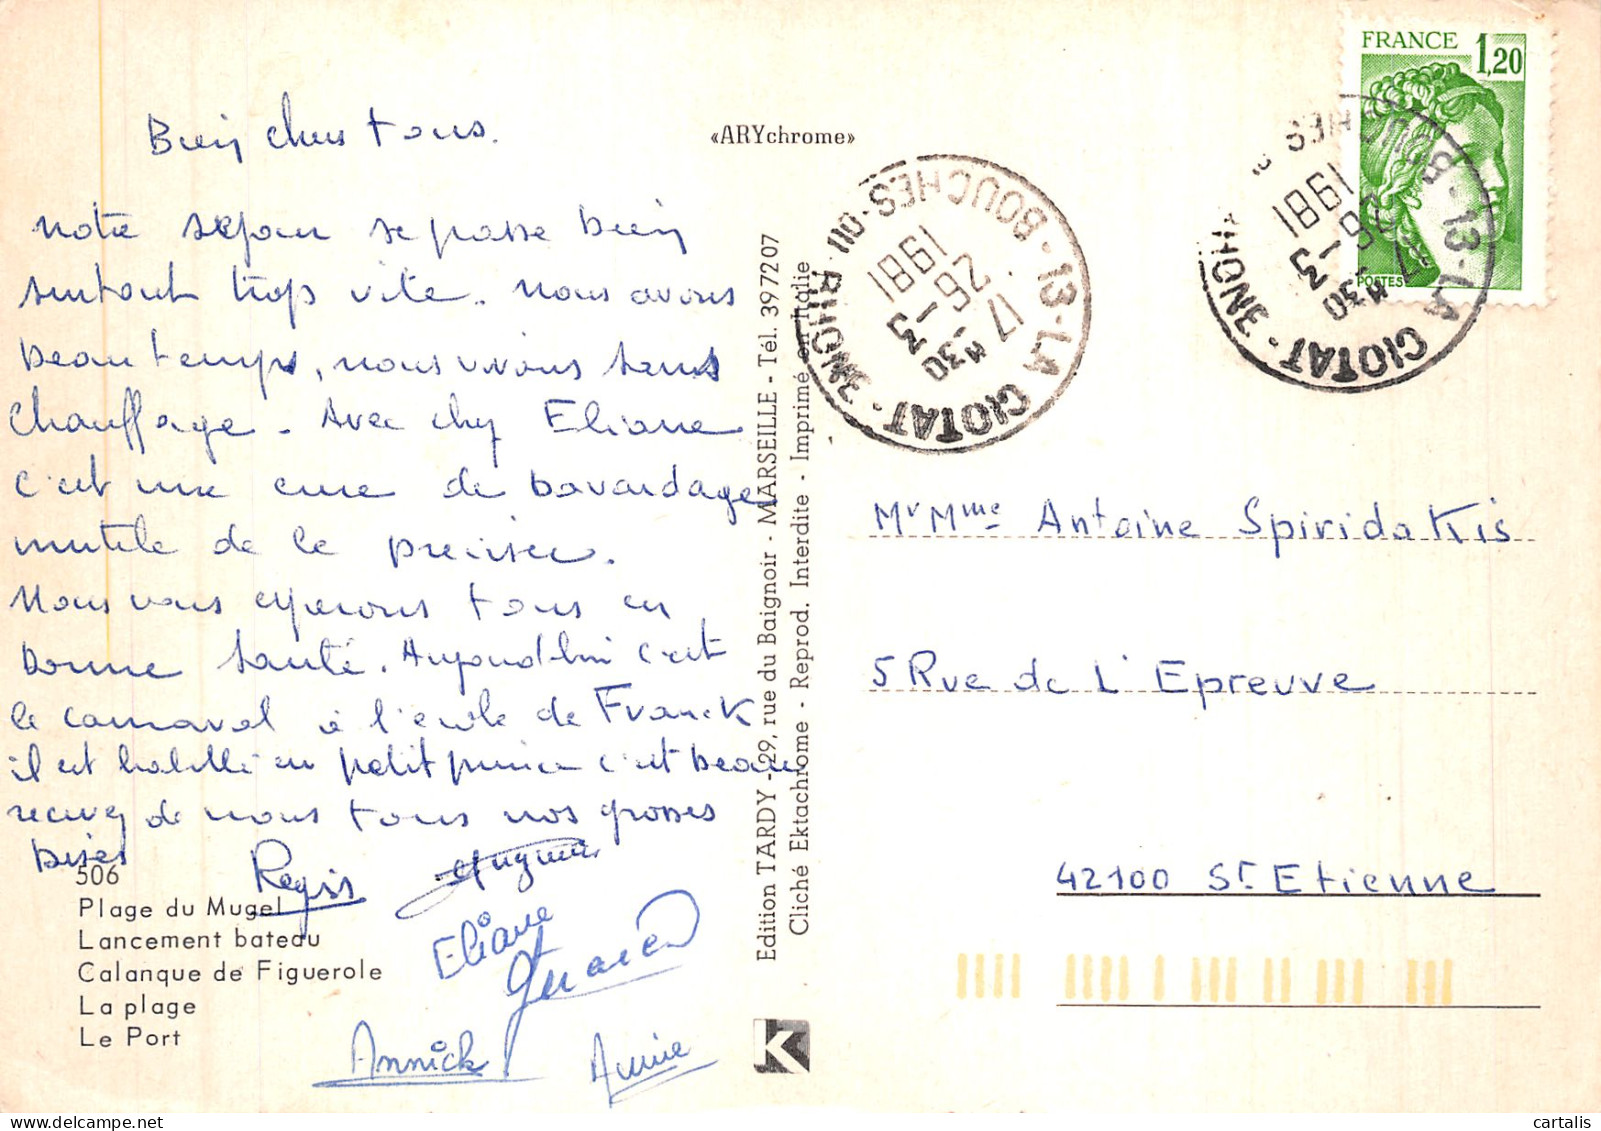 Bien chers tous.
notre séjour se passe bien
surtout trop vite. nous avons
beau temps, nous vivons sans
chauffage. Avec chez Eliane
c'est une cure de bavardage
inutile de le préciser.
Nous vous espérons tous en
bonne santé. Aujourd'hui c'est
le carnaval à l'école de Franck
il est habillé en petit prince c'est beau
recevez de nous tous nos grosses
bises
Regis
Eliane
Gérard
Annick
Annie
506
Plage du Mugel
Lancement bateau
Calanque de Figuerole
La plage
Le Port
«ARYchrome»
Edition TARDY - 29, rue du Baignoir - MARSEILLE - Tél. 397207
Cliché Ektachrome - Reprod. Interdite - Imprimé en Italie
K
FRANCE 1,20
POSTES
13-LA CIOTAT - BOUCHES-DU-RHONE
17 H 30
26-3
1981
13-LA CIOTAT - BOUCHES-DU-RHONE
17 H 30
26-3
1981
Mr Mme Antoine Spiridakis
5 Rue de L'Epreuve
42100 St. Etienne
cartalis